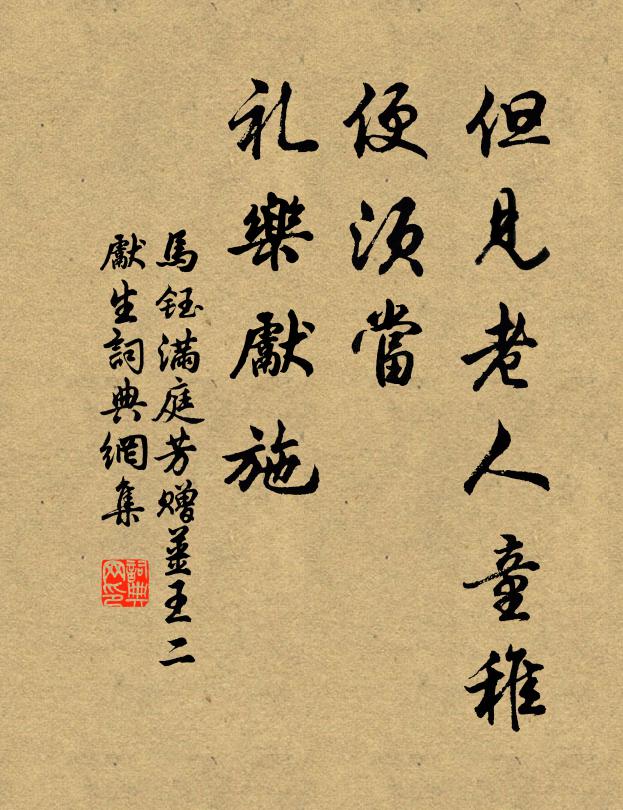 但見老人童稚
便須當
礼樂獻施
馬鈺滿庭芳贈姜王二
獻生詞典網集
詞典网印